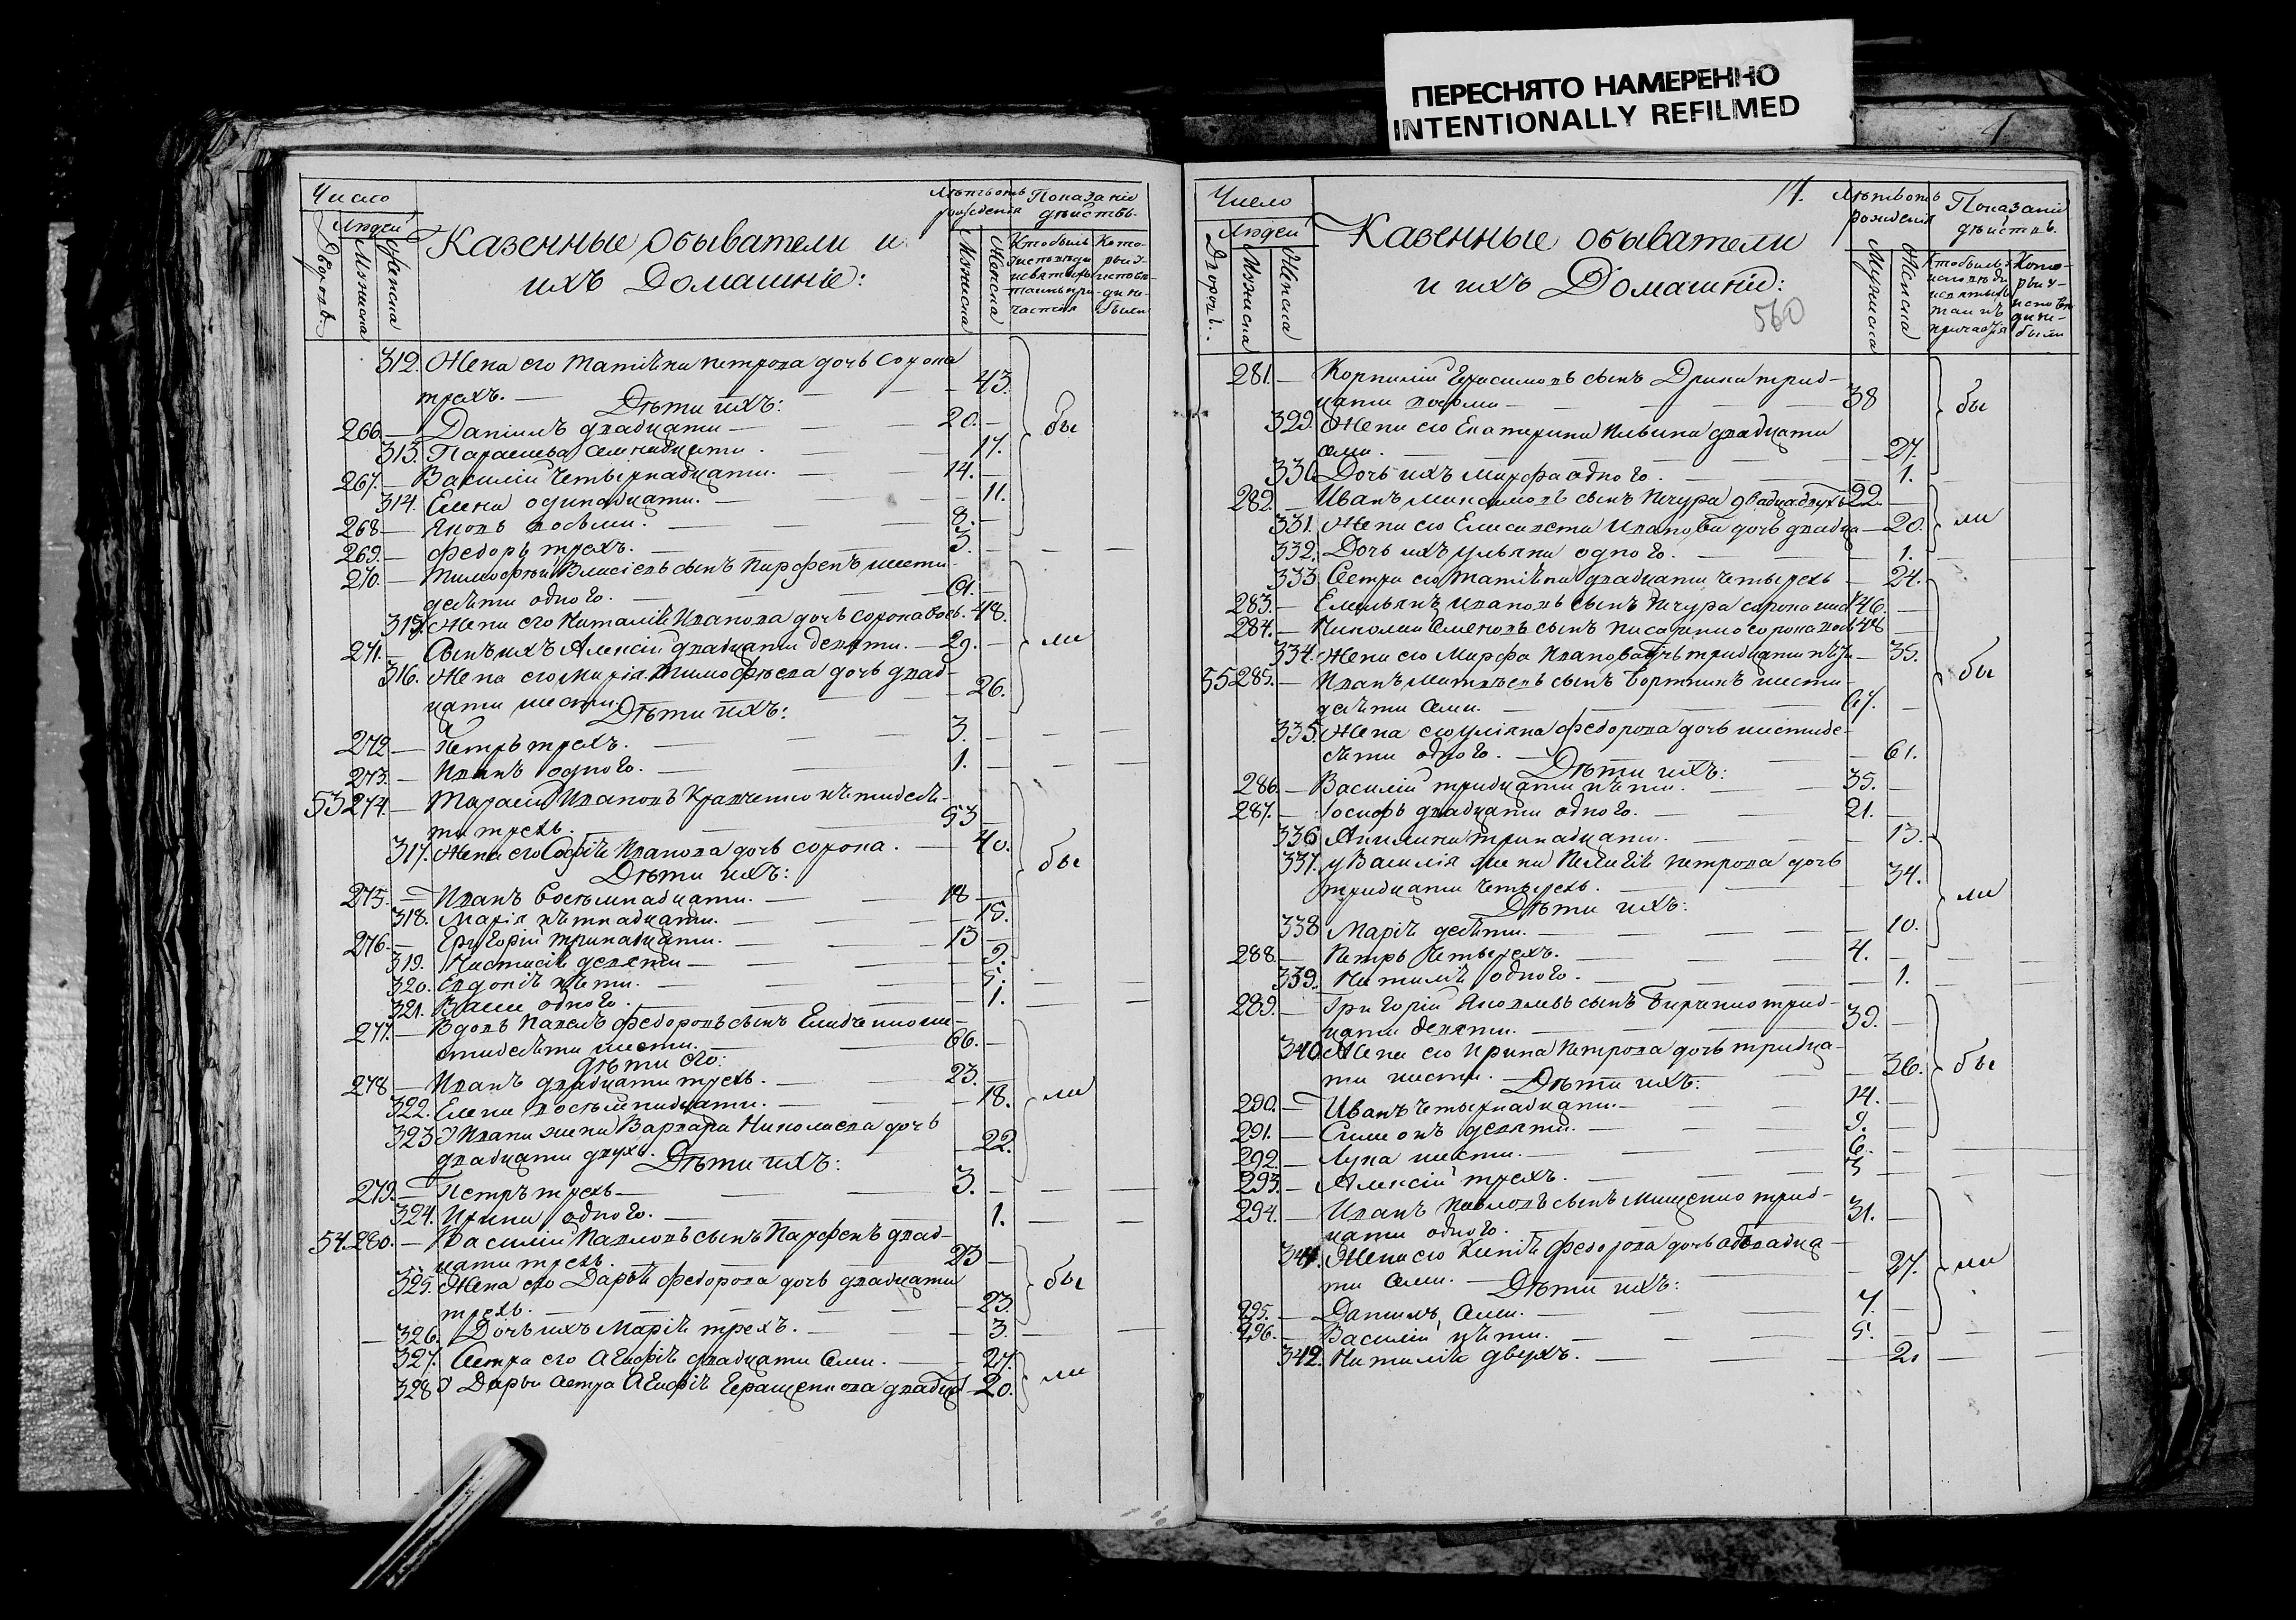 ПЕРЕСНЯТО НАМЕРЕННО
INTENTIONALLY REFILMED
Число
Людей
Дворовъ.
Мужеска
Женска
Казенные обыватели и
ихъ Домашніе:
Лѣтъ отъ
рожденія
Мужеска
Женска
Показаніе
дѣйствъ.
Кто былъ
у исповѣди
и святыхъ
таинъ при-
частія
Кото-
рые у
исповѣ-
ди не
были
312. Жена его Татіѣна Петрова дочь сорока
трехъ. — 43.
Дѣти ихъ:
266. — Даніилъ двадцати — 20. —
313. Параскева семнадцати — 17.
267. — Василій четырнадцати. — 14. —
314. Елена одинадцати. — 11.
268 — Яковъ восьми. — 8. —
бы
269. — Федоръ трехъ. — 3. —
270. — Тимофѣй Власіевъ сынъ Парфенъ шести
десѣти одного. — 61.
315. Жена его Наталіѣ Иванова дочь сорока вос. 48.
271. — Сынъ ихъ Алексій двадцати девяти. — 29. —
ли
316. Жена его Марія Тимофѣева дочь двад-
цати шести. — 26.
Дѣти ихъ:
272 — Петръ трехъ. — 3. —
273. — Иванъ одного. — 1. —
53 274. — Тарасій Ивановъ Кравченко пѣтидесѣ-
ти трехъ. — 53 —
317. Жена его Софіѣ Иванова дочь сорока. — 40.
Дѣти ихъ:
бы
275. — Иванъ восемнадцати. — 18 —
318. Марія пѣтнадцати. — 15.
276. — Григорій тринадцати. — 13 —
319. Настасіѣ девяти — 9.
320. Евдокіѣ пѣти. — 5.
321. Васса одного. — 1.
277. — Вдовъ Павелъ Федоровъ сынъ ше-
стидесѣти шести. — 66. —
дѣти его:
278 — Иванъ двадцати трехъ. — 23. —
322. Елена восемнадцати. — 18.
ли
323 У Ивана жена Варвара Николаева дочь
двадцати двухъ. — 22.
Дѣти ихъ:
279. — Петръ трехъ — 3. —
324. Ирина одного. — 1.
54. 280. — Василій Павловъ сынъ Парфенъ двад-
цати трехъ. — 23 —
325. Жена его Дарьѣ Федорова дочь двадцати
трехъ. — 23.
бы
326. Дочь ихъ Маріѣ трехъ. — 3.
327. Сестра его Агафіѣ двадцати семи. — 27.
328 У Дарьи сестра Агафіѣ двадца — 20.
ли
Число
Людей
Дворовъ.
Мужеска
Женска
Казенные обыватели
и ихъ Домашніе:
11.
560
Лѣтъ отъ
рожденія
Мужеска
Женска
Показаніе
дѣйствъ.
Кто былъ у
исповѣди
и святыхъ
таинъ
причастія
Кото-
рые у
исповѣ-
ди не
были
281. — Корнилій Герасимовъ сынъ трид-
цати восьми — 38
329. Жена его Екатерина Ильина двадцати
семи. — 27.
бы
330. Дочь ихъ Марфа одного. — 1.
282. — Иванъ Максимовъ сынъ Печура двадца двухъ 22 —
331. Жена его Елисавета Иванова дочь двадца — 20.
ли
332. Дочь ихъ Ульяна одного. — 1.
333 Сестра его Татіѣна двадцати четырехъ — 24.
283. — Емельянъ Ивановъ сынъ Печура сорока шес 46. —
284. — Николай Семеновъ сынъ Писаренко сорока вос 48 —
334. Жена его Марфа Иванова дочь тридцати пѣти — 35.
бы
55 285. — Иванъ Матвѣевъ сынъ Бортникъ шести-
десѣти семи. — 67. —
335. Жена его Уліяна Федорова дочь шестиде-
сѣти одного. — 61.
Дѣти ихъ:
286. — Василій тридцати пѣти. — 35. —
287. — Іосифъ двадцати одного. — 21. —
336 Акилина тринадцати. — 13.
337. у Василія жена Пелагіѣ Петрова дочь
тридцати четырехъ. — 34.
Дѣти ихъ:
ли
338 Маріѣ десѣти. — 10.
288. — Петръ четырехъ. — 4. —
339. Наталіѣ одного. — 1.
289. — Григорій Яковлевъ сынъ трид-
цати девяти. — 39. —
340. Жена его Ирина Петрова дочь тридца-
ти шести. — 36.
Дѣти ихъ:
бы
290. — Иванъ четырнадцати. — 14. —
291. — Симеонъ девяти. — 9. —
292. — Лука шести. — 6. —
293. — Алексій трехъ. — 3 —
294. — Иванъ Павловъ сынъ Мищенко трид-
цати одного. — 31. —
341. Жена его Ксеніѣ Федорова дочь двадца-
ти семи. — 27.
Дѣти ихъ:
ли
295. — Даніилъ семи. — 7. —
296. — Василій пѣти. — 5. —
342. Наталіѣ двухъ. — 2.